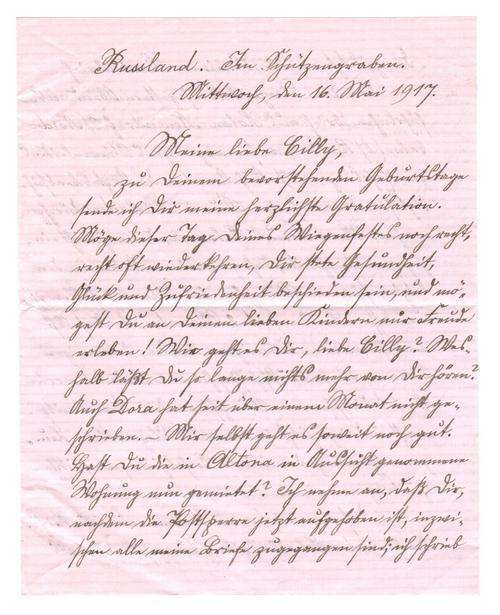 Russland. Im Schützengraben.
Mittwoch, den 16. Mai 1917.
Meine liebe Cilly,
zu Deinem bevorstehenden Geburtstage
sende ich Dir meine herzlichste Gratulation.
Möge dieser Tag Deines Wiegenfestes noch recht,
recht oft wiederkehren, Dir stets Gesundheit,
Glück und Zufriedenheit beschieden sein, und mö-
gest Du an Deinen lieben Kindern nur Freude
erleben! Wie geht es Dir, liebe Cilly? Wes-
halb läßt Du so lange nichts mehr von Dir hören?
Auch Dora hat seit über einem Monat nicht ge-
schrieben. – Mir selbst geht es soweit noch gut.
Hast Du die in Altona in Aussicht genommene
Wohnung nun gemietet? Ich nehme an, daß Dir,
nachdem die Postsperre jetzt aufgehoben ist, inzwi-
schen alle meine Briefe zugegangen sind; ich schrieb